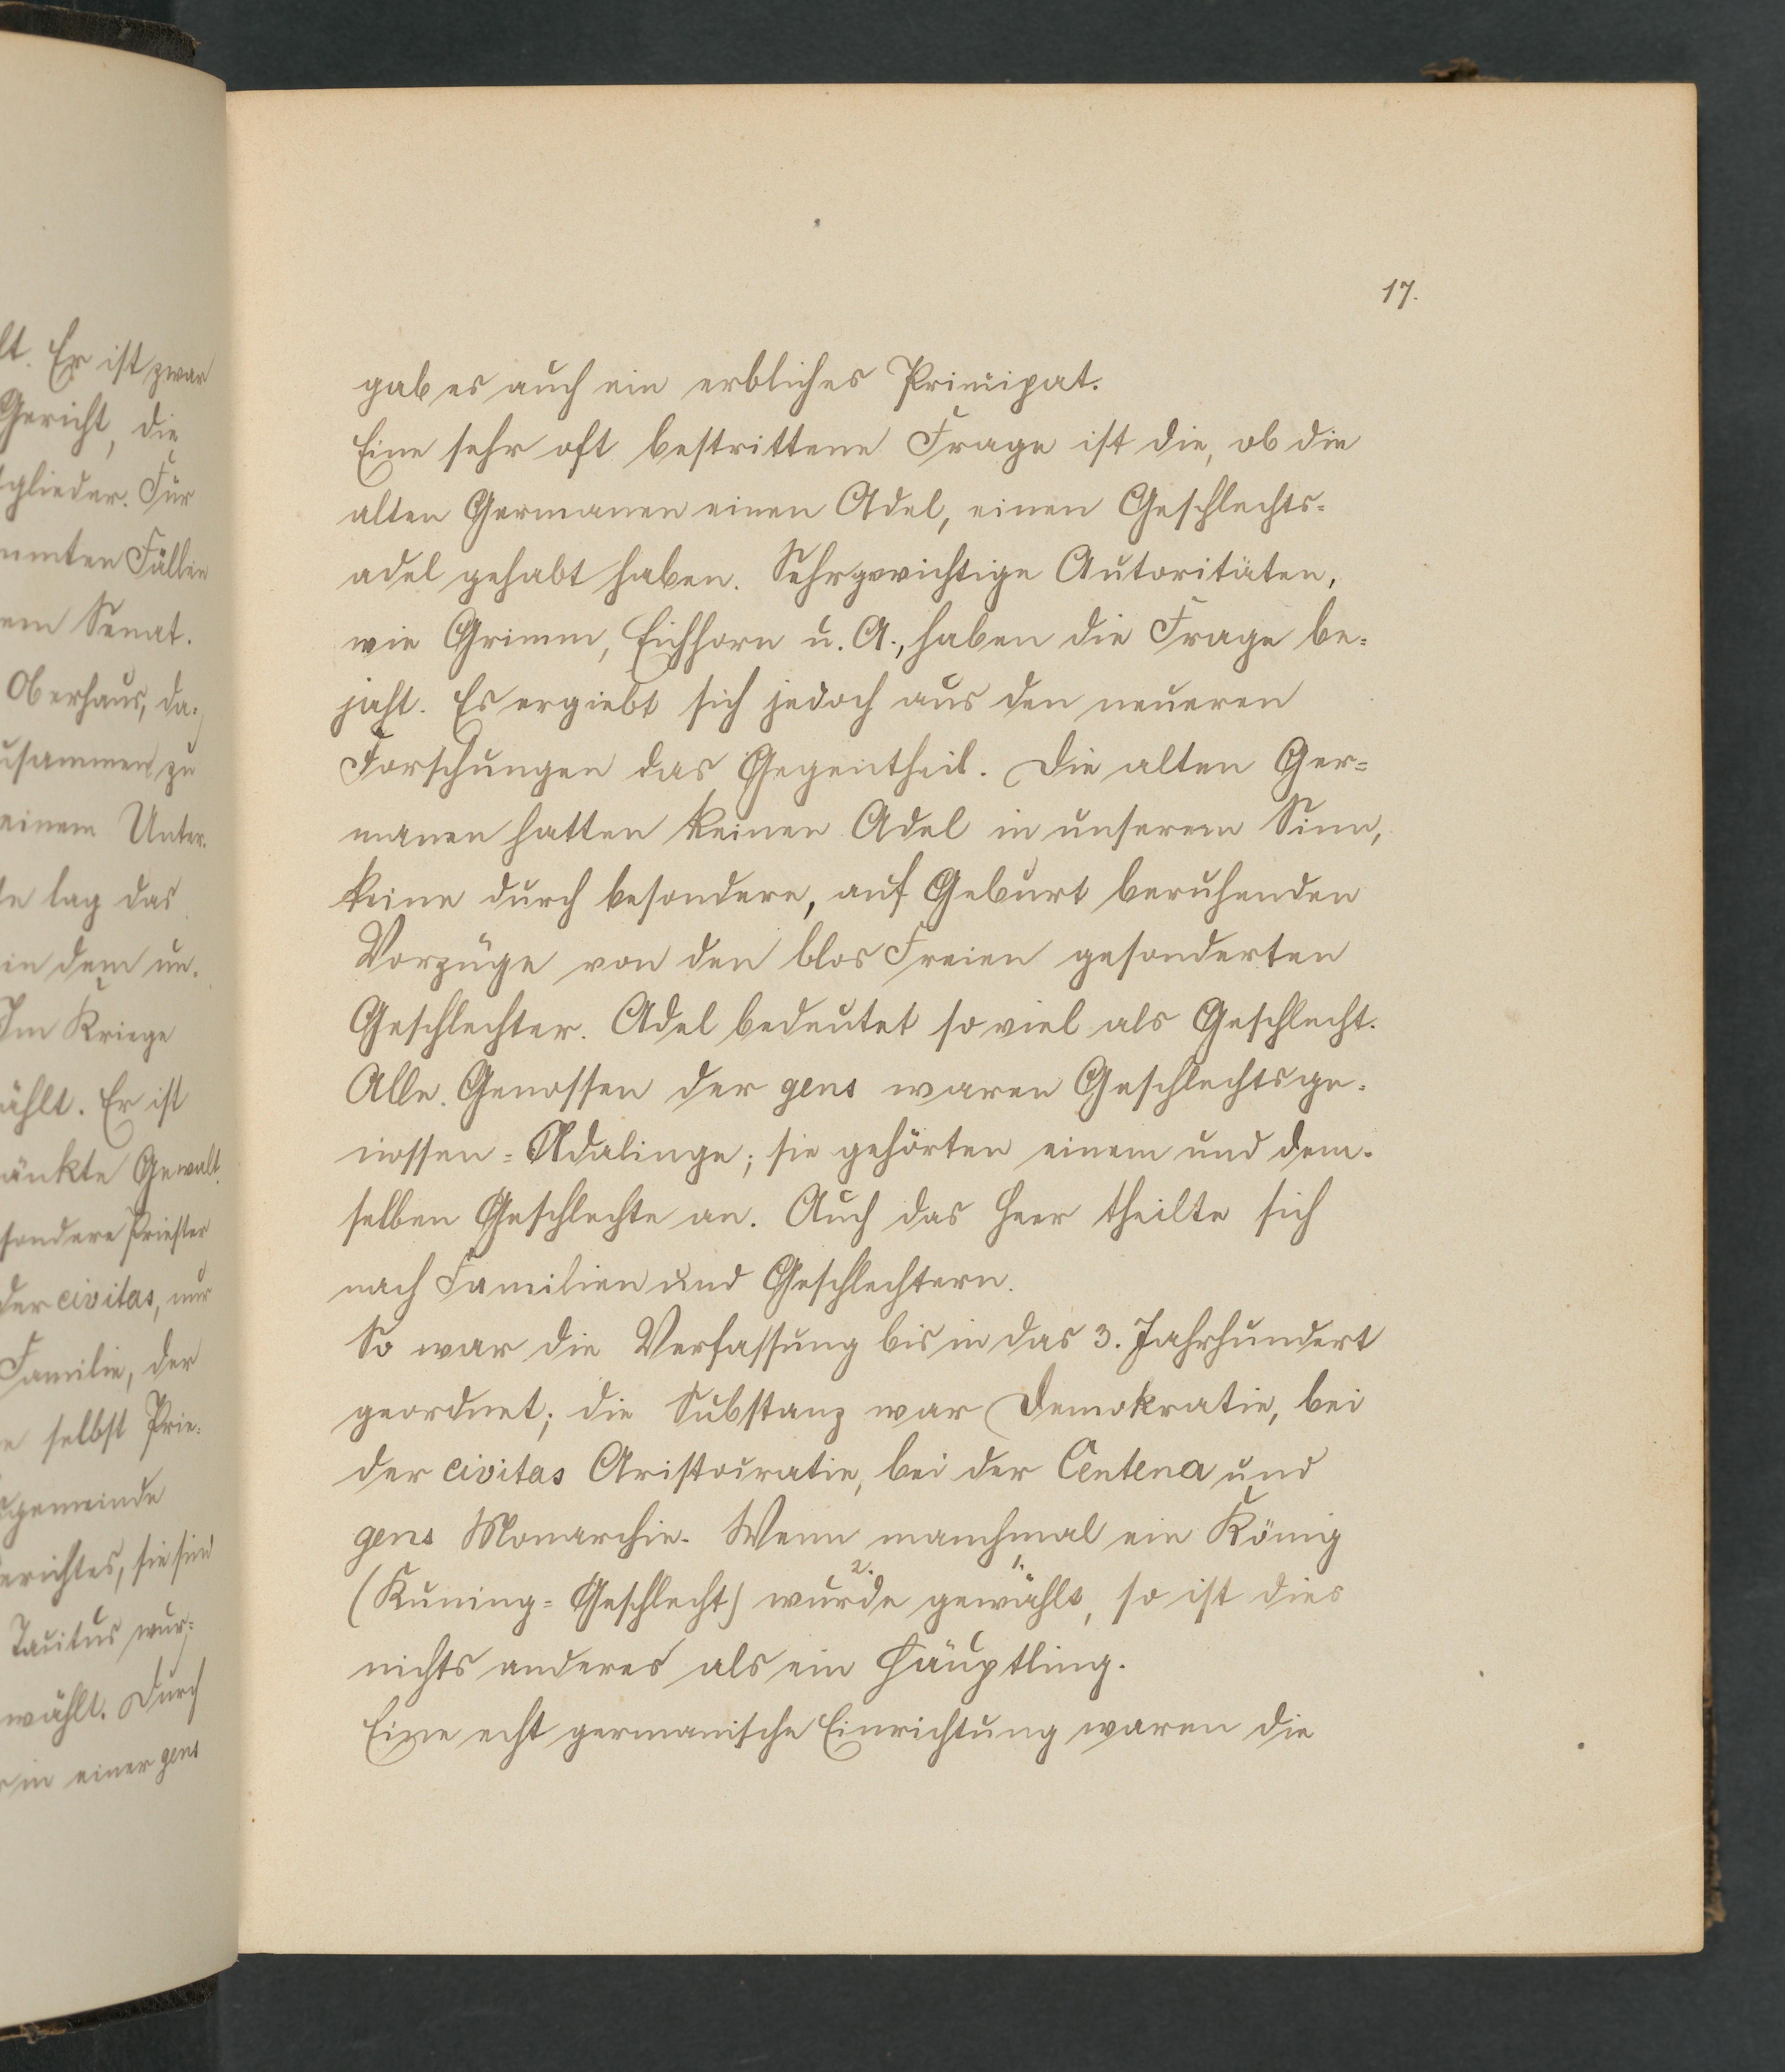 lt. Er ist zwar
Gericht, die
tglieder. Für
mmten Fällen
em Senat.
Oberhaus, da-
usammen zu
einem Unter-
te lag das
in dem un-
Im Kriege
ählt. Er ist
änkte Gewalt.
sondere Priester
der civitas, nur
Familie, der
e selbst Prie-
gemeinde
erichtes, sie sind
Tacitus wur-
wählt. Durch
r in einer gens
17.
gab es auch ein erbliches Principat.
Eine sehr oft bestrittene Frage ist die, ob die
alten Germanen einen Adel, einen Geschlechts-
adel gehabt haben. Sehr gewichtige Autoritäten,
wie Grimm, Eichhorn u. A., haben die Frage be-
jaht. Es ergiebt sich jedoch aus den neueren
Forschungen das Gegentheil. Die alten Ger-
manen hatten keinen Adel in unserem Sinn,
keine durch besondere, auf Geburt beruhenden
Vorzüge von den blos Freien gesonderten
Geschlechter. Adel bedeutet so viel als Geschlecht.
Alle Genossen der gens waren Geschlechtsge-
nossen = Adalinge; sie gehörten einem und dem-
selben Geschlechte an. Auch das Heer theilte sich
nach Familien und Geschlechtern.
So war die Verfassung bis in das 3. Jahrhundert
geordnet; die Substanz war Demokratie, bei
der civitas Aristocratie, bei der Centena und
gens Monarchie. Wenn manchmal ein König
2. 1.
(Kuning = Geschlecht) wurde gewählt, so ist dies
nichts anderes als ein Häuptling.
Eine echt germanische Einrichtung waren die